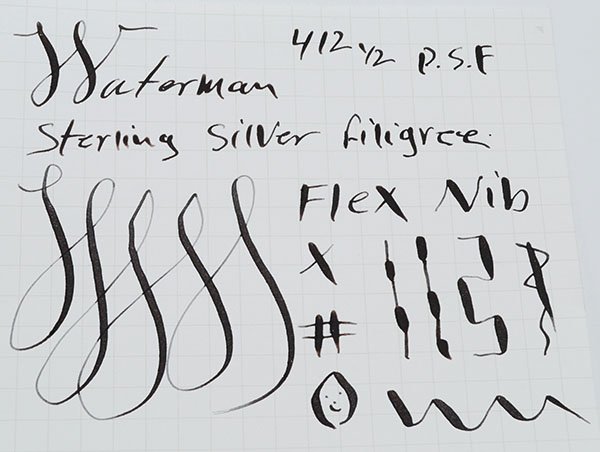 Waterman 412 1/2 P.S.F
Sterling Silver Filigree.
Flex Nib
X
#